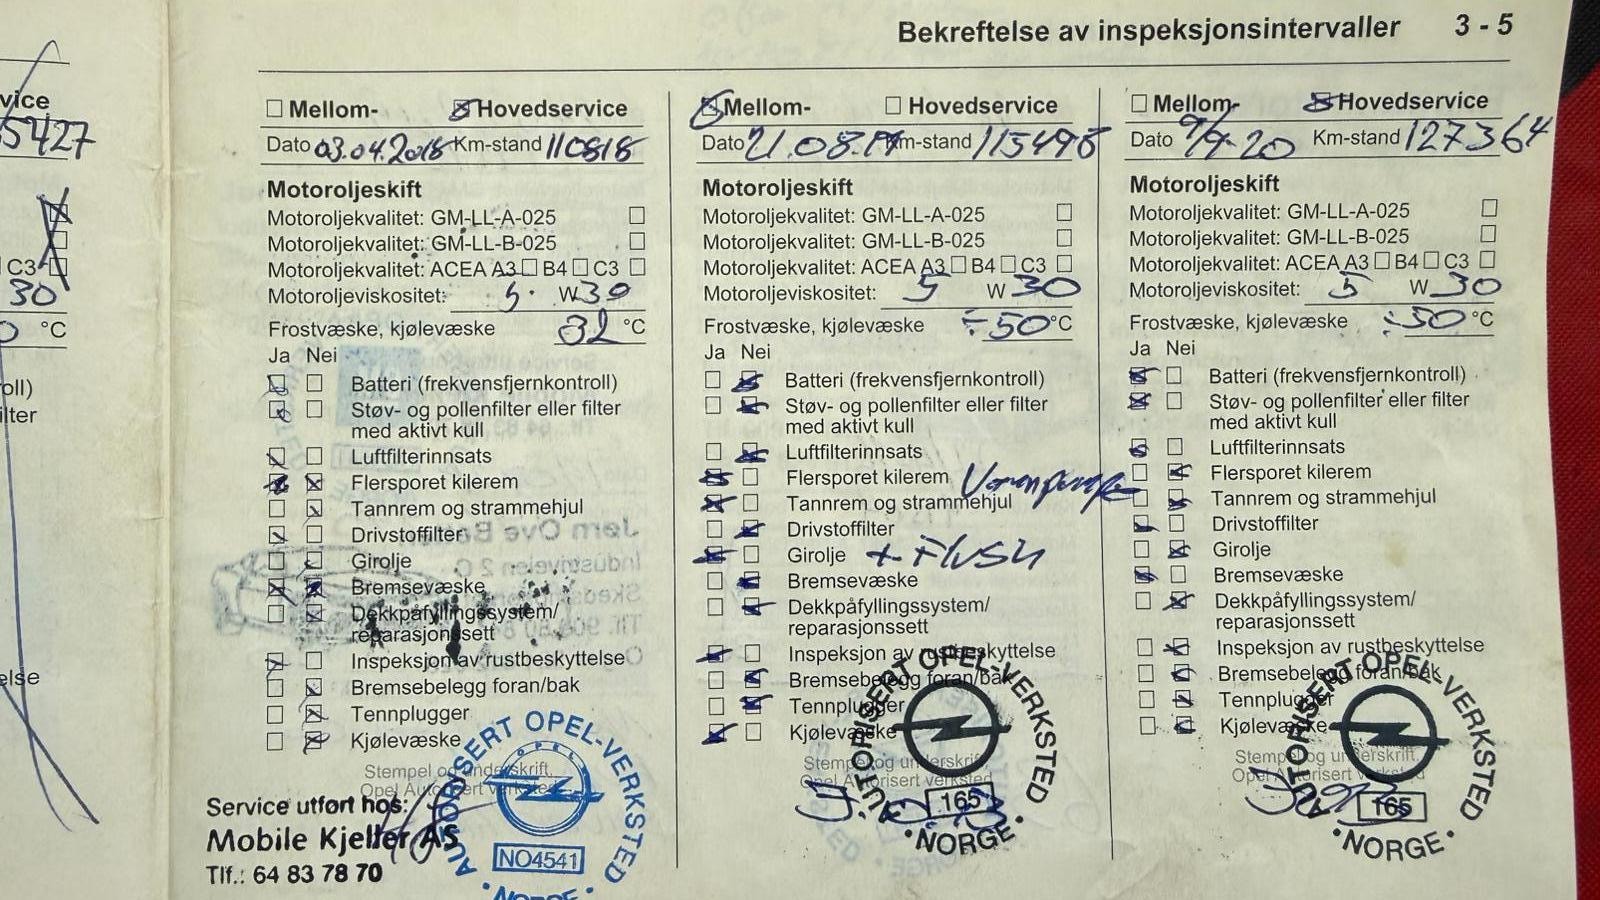 Bekreftelse av inspeksjonsintervaller 3 - 5
vice
5427
C3
30
°C
oll)
lter
else
Mellom- Hovedservice
Dato 03.04.2018 Km-stand 110818
Motoroljeskift
Motoroljekvalitet: GM-LL-A-025
Motoroljekvalitet: GM-LL-B-025
Motoroljekvalitet: ACEA A3 B4 C3
Motoroljeviskositet: 5 W 30
Frostvæske, kjølevæske 32 °C
Ja Nei
Batteri (frekvensfjernkontroll)
Støv- og pollenfilter eller filter
med aktivt kull
Luftfilterinnsats
Flersporet kilerem
Tannrem og strammehjul
Drivstoffilter
Girolje
Bremsevæske
Dekkpåfyllingssystem/
reparasjonssett
Inspeksjon av rustbeskyttelse
Bremsebelegg foran/bak
Tennplugger
Kjølevæske
Stempel og underskrift.
Opel Autorisert verksted
Service utført hos:
Mobile Kjeller AS
Tlf.: 64 83 78 70
AUTORISERT OPEL-VERKSTED
OPEL
NO4541
NORGE
Mellom- Hovedservice
Dato 21.08.19 Km-stand 115498
Motoroljeskift
Motoroljekvalitet: GM-LL-A-025
Motoroljekvalitet: GM-LL-B-025
Motoroljekvalitet: ACEA A3 B4 C3
Motoroljeviskositet: 5 W 30
Frostvæske, kjølevæske ÷50 °C
Ja Nei
Batteri (frekvensfjernkontroll)
Støv- og pollenfilter eller filter
med aktivt kull
Luftfilterinnsats
Flersporet kilerem
Tannrem og strammehjul
Drivstoffilter
Girolje + Flush
Bremsevæske
Dekkpåfyllingssystem/
reparasjonssett
Inspeksjon av rustbeskyttelse
Bremsebelegg foran/bak
Tennplugger
Kjølevæske
Stempel og underskrift.
Opel Autorisert verksted
AUTORISERT OPEL-VERKSTED
165
NORGE
Mellom- Hovedservice
Dato 9/9-20 Km-stand 127364
Motoroljeskift
Motoroljekvalitet: GM-LL-A-025
Motoroljekvalitet: GM-LL-B-025
Motoroljekvalitet: ACEA A3 B4 C3
Motoroljeviskositet: 5 W 30
Frostvæske, kjølevæske ÷50 °C
Ja Nei
Batteri (frekvensfjernkontroll)
Støv- og pollenfilter eller filter
med aktivt kull
Luftfilterinnsats
Flersporet kilerem
Tannrem og strammehjul
Drivstoffilter
Girolje
Bremsevæske
Dekkpåfyllingssystem/
reparasjonssett
Inspeksjon av rustbeskyttelse
Bremsebelegg foran/bak
Tennplugger
Kjølevæske
Stempel og underskrift.
Opel Autorisert verksted
AUTORISERT OPEL-VERKSTED
165
NORGE